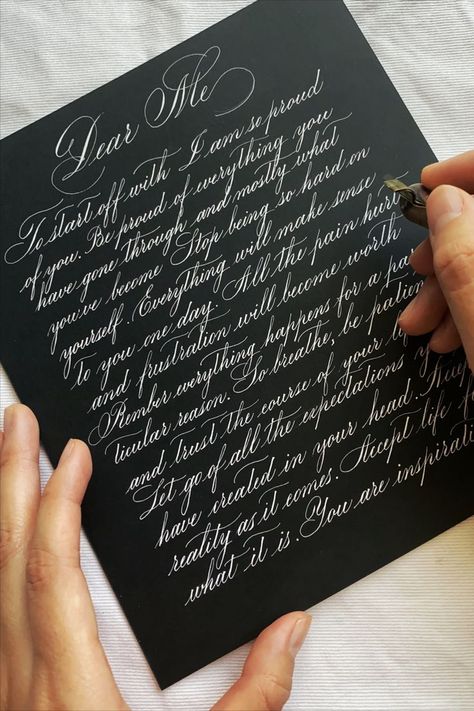 Dear Me
To start off with I am so proud
of you. Be proud of everything you
have gone through and mostly what
you've become Stop being so hard on
yourself. Everything will make sense
to you one day. All the pain hurt
and frustration will become worth
Rember everything happens for a par
ticular reason. So breathe, be patien
and trust the course of your
Let go of all the expectations y
have created in your head. Accept
reality as it comes. Accept life
what it is. You are inspirati